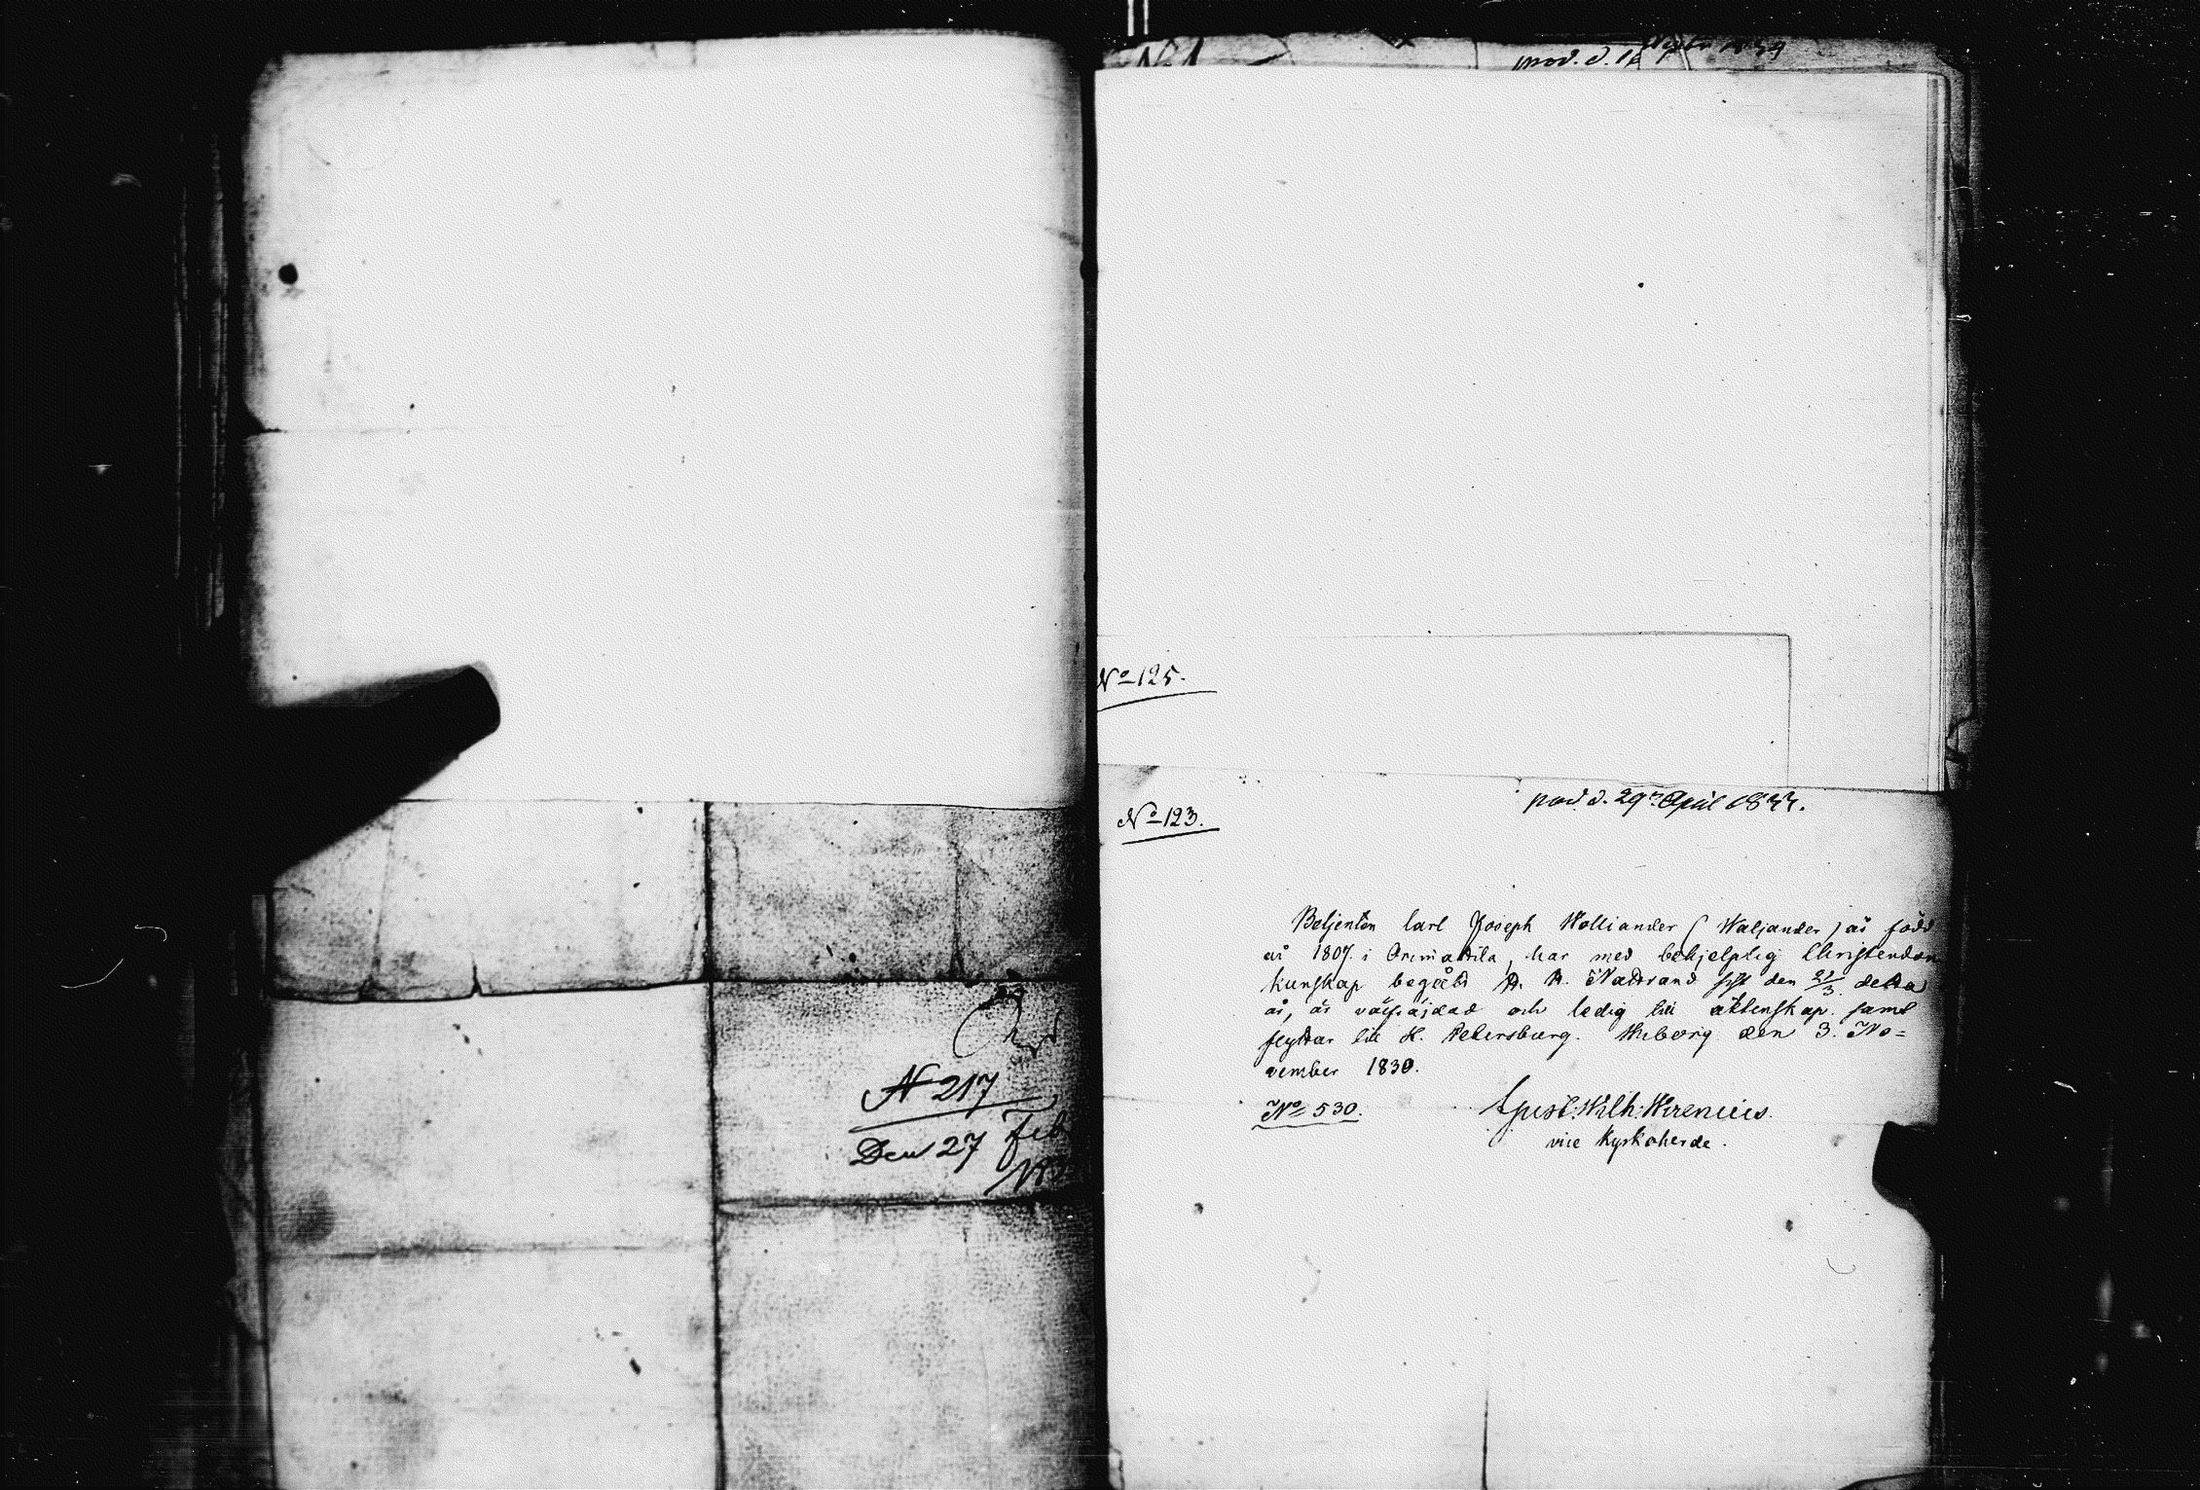 N 217
Den 27 Feb
prod. d.
No 125.
No 123.
prod d. 29 April 1834.
Betjenten Carl Joseph Walliander (Waljander) är född
år 1807. i Orimattila, har med behjelplig Christendoms
kunskap begått H. H. Nattvard sist den 21/3. detta
år, är välfräjdad och ledig till äktenskap. samt
flyttar till St. Petersburg. Wiborg den 3. No=
vember 1830.
No 530.
Gust: Wilh: Wirenius.
vice Kyrkoherde.